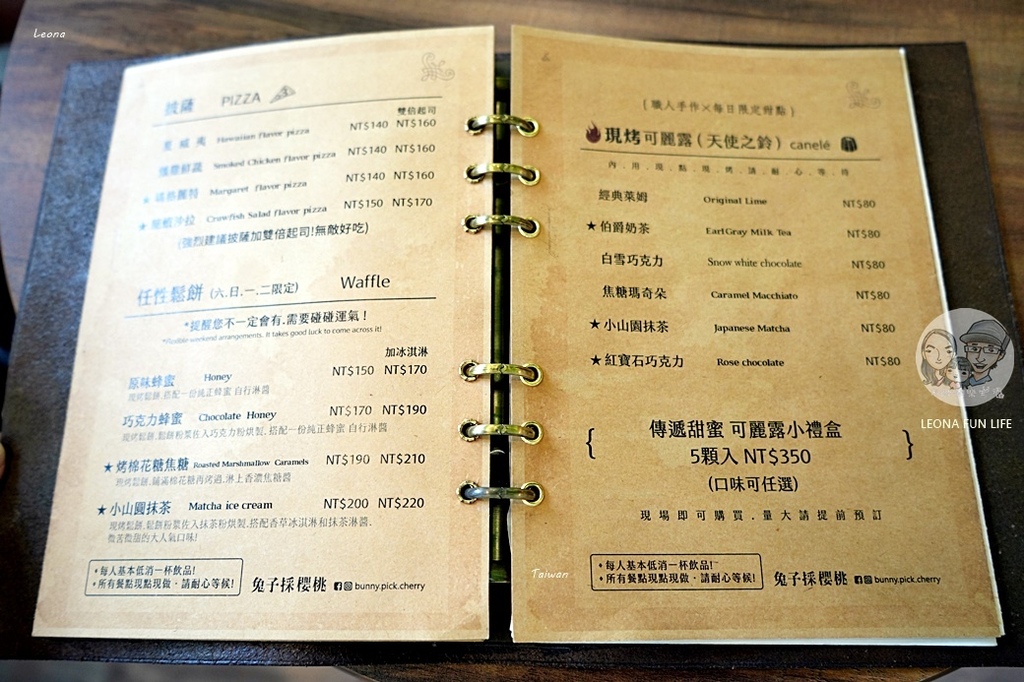 Leona
披薩 PIZZA
雙倍起司
夏威夷 Hawaiian flavor pizza NT$140 NT$160
燻雞鮮蔬 Smoked Chicken flavor pizza NT$140 NT$160
★瑪格麗特 Margaret flavor pizza NT$140 NT$160
★龍蝦沙拉 Crawfish Salad flavor pizza NT$150 NT$170
(強烈建議披薩加雙倍起司!無敵好吃)
任性鬆餅 (六.日.一.二限定) Waffle
*提醒您不一定會有.需要碰碰運氣！
*Flexible weekend arrangements. It takes good luck to come across it!
加冰淇淋
原味蜂蜜 Honey NT$150 NT$170
現烤鬆餅.搭配一份純正蜂蜜 自行淋醬
巧克力蜂蜜 Chocolate Honey NT$170 NT$190
現烤鬆餅.鬆餅粉漿佐入巧克力粉烘製.搭配一份純正蜂蜜 自行淋醬
★烤棉花糖焦糖 Roasted Marshmallow Caramels NT$190 NT$210
現烤鬆餅.鋪滿棉花糖再烤過.淋上香濃焦糖醬
★小山園抹茶 Matcha ice cream NT$200 NT$220
現烤鬆餅.鬆餅粉漿佐入抹茶粉烘製.搭配香草冰淇淋和抹茶淋醬.
微苦微甜的大人氣口味!
♦每人基本低消一杯飲品!
♦所有餐點現點現做，請耐心等候!
兔子採櫻桃 bunny.pick.cherry
{ 職人手作×每日限定甜點 }
現烤可麗露 (天使之鈴) canelé
內.用.現.點.現.烤.請.耐.心.等.待
經典萊姆 Original Lime NT$80
★伯爵奶茶 EarlGray Milk Tea NT$80
白雪巧克力 Snow white chocolate NT$80
焦糖瑪奇朵 Caramel Macchiato NT$80
★小山園抹茶 Japanese Matcha NT$80
★紅寶石巧克力 Rose chocolate NT$80
{ 傳遞甜蜜 可麗露小禮盒 }
5顆入 NT$350
(口味可任選)
現場即可購買.量大請提前預訂
♦每人基本低消一杯飲品!
♦所有餐點現點現做，請耐心等候!
兔子採櫻桃 bunny.pick.cherry
Taiwan
LEONA FUN LIFE